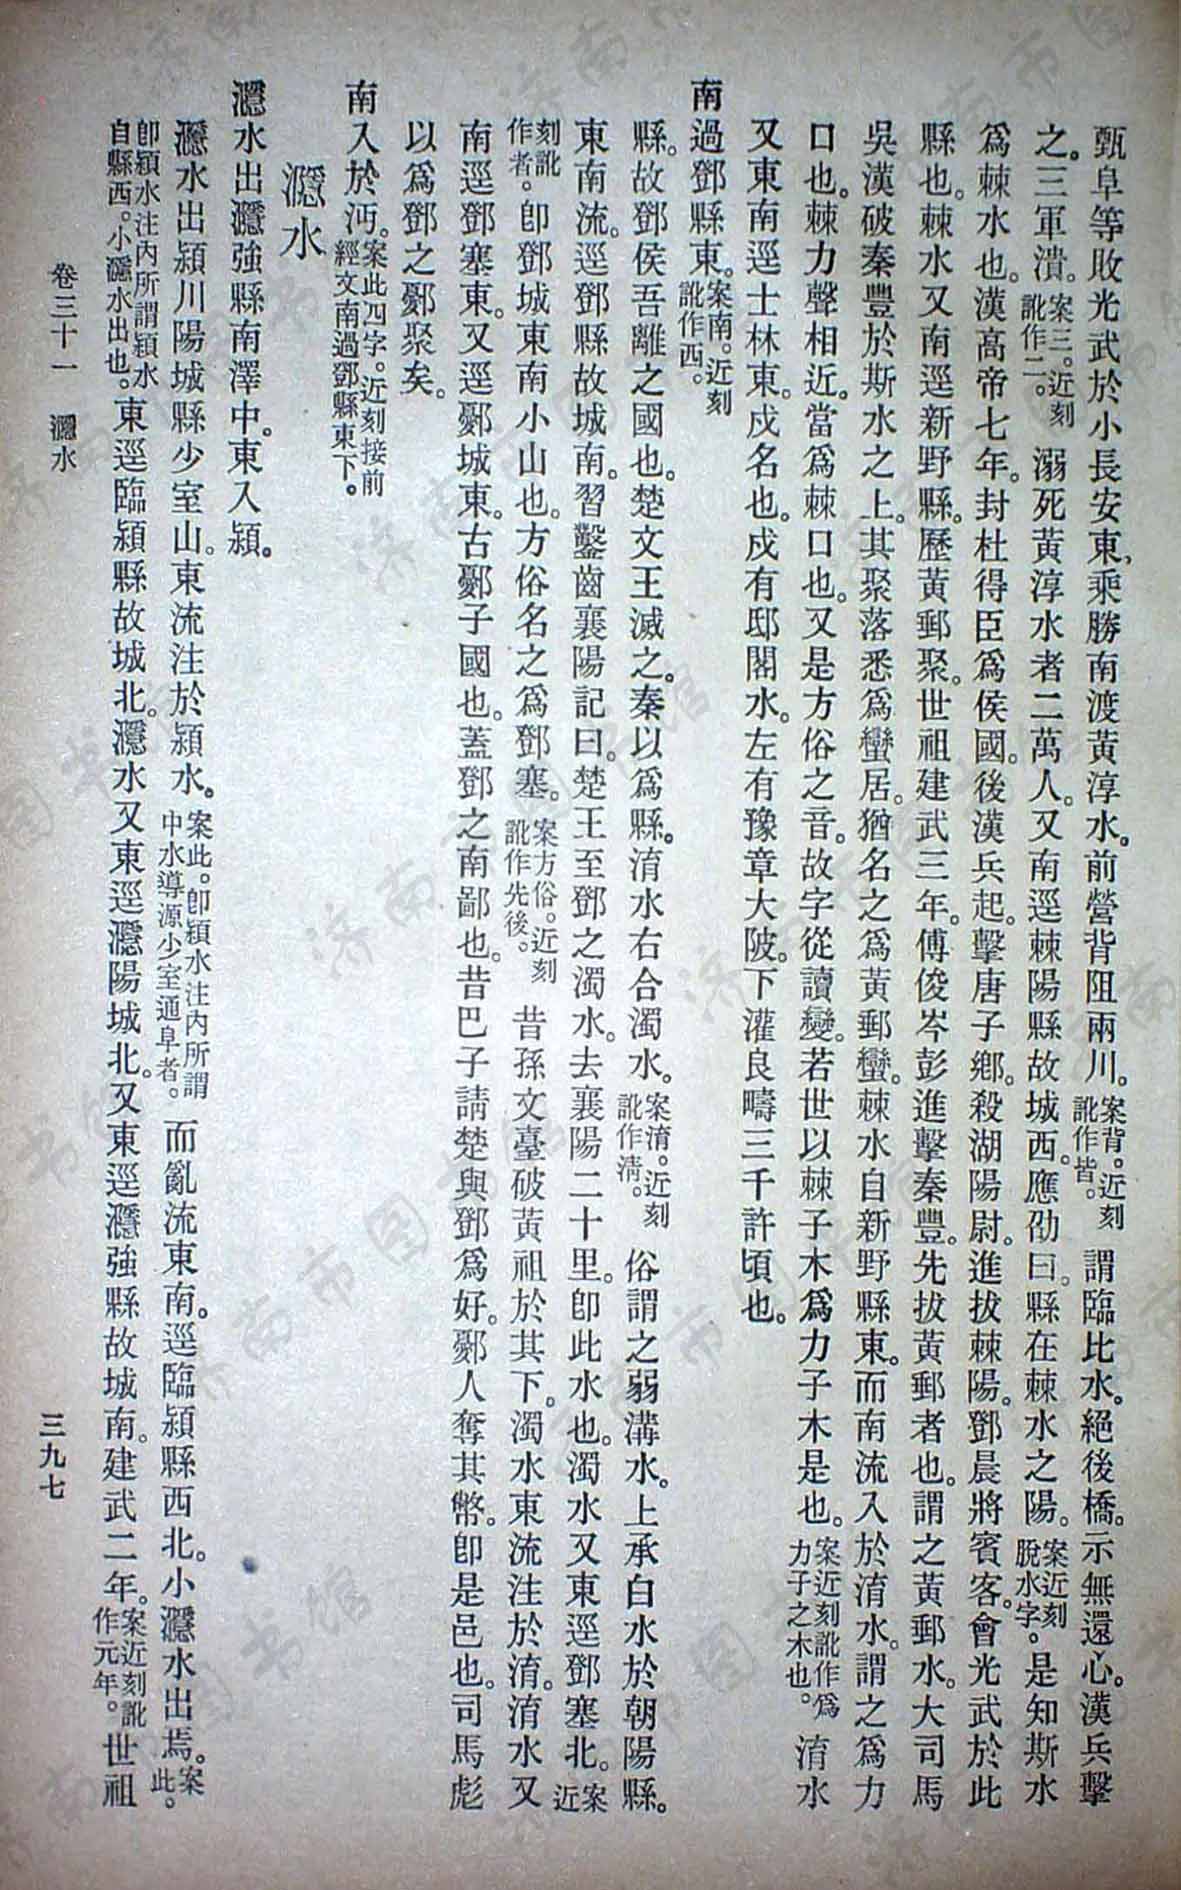 甄阜等敗光武於小長安東、乘勝南渡黃淳水。前營背阻兩川。案背。近刻訛作皆。謂臨比水。絕後橋。示無還心。漢兵擊
之。三軍潰。案三。近刻訛作二。溺死黃淳水者二萬人。又南逕棘陽縣故城西。應劭曰。縣在棘水之陽。案近刻脫水字。是知斯水
爲棘水也。漢高帝七年。封杜得臣爲侯國。後漢兵起。擊唐子鄉。殺湖陽尉。進拔棘陽。鄧晨將賓客。會光武於此
縣也。棘水又南逕新野縣。歷黃郵聚。世祖建武三年。傅俊岑彭進擊秦豐。先拔黃郵者也。謂之黃郵水。大司馬
吳漢破秦豐於斯水之上。其聚落悉爲蠻居。猶名之爲黃郵蠻。棘水自新野縣東。而南流入於淯水。謂之爲力
口也。棘力聲相近。當爲棘口也。又是方俗之音。故字從讀變。若世以棘子木爲力子木是也。案近刻訛作爲力子之木也。淯水
又東南逕士林東。戍名也。戍有邸閣水。左有豫章大陂。下灌良疇三千許頃也。
南過鄧縣東。案南。近刻訛作西。
縣。故鄧侯吾離之國也。楚文王滅之。秦以爲縣。淯水右合濁水。案淯。近刻訛作淸。俗謂之弱溝水。上承白水於朝陽縣。
東南流。逕鄧縣故城南。習鑿齒襄陽記曰。楚王至鄧之濁水。去襄陽二十里。卽此水也。濁水又東逕鄧塞北。案近
刻訛作者。卽鄧城東南小山也。方俗名之爲鄧塞。案方俗。近刻訛作先後。昔孫文臺破黃祖於其下。濁水東流注於淯。淯水又
南逕鄧塞東。又逕鄾城東。古鄾子國也。蓋鄧之南鄙也。昔巴子請楚與鄧爲好。鄾人奪其幣。卽是邑也。司馬彪
以爲鄧之鄾聚矣。
南入於沔。案此四字。近刻接前經文南過鄧縣東下。
㶏水
㶏水出㶏強縣南澤中。東入潁。
㶏水出潁川陽城縣少室山。東流注於潁水。案此。卽潁水注內所謂中水導源少室通阜者。而亂流東南。逕臨潁縣西北。小㶏水出焉。案此。
卽潁水注內所謂潁水自縣西。小㶏水出也。東逕臨潁縣故城北。㶏水又東逕㶏陽城北。又東逕㶏強縣故城南。建武二年。案近刻訛作元年。世祖
卷三十一　㶏水
三九七